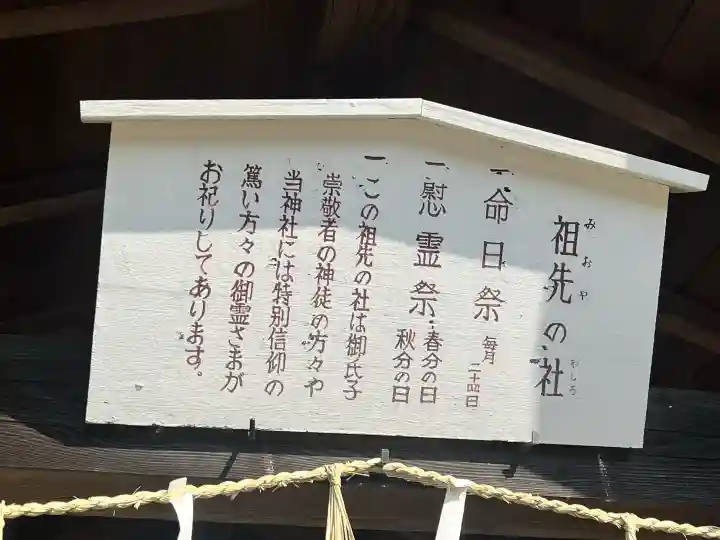 祖先の社
みおや
やしろ
一 命日祭 毎月二十四日
一 慰霊祭・春分の日
秋分の日
一 この祖先の社は御氏子
崇敬者の神徒の方々や
当神社には特別信仰の
篤い方々の御霊さまが
お祀りしてあります。